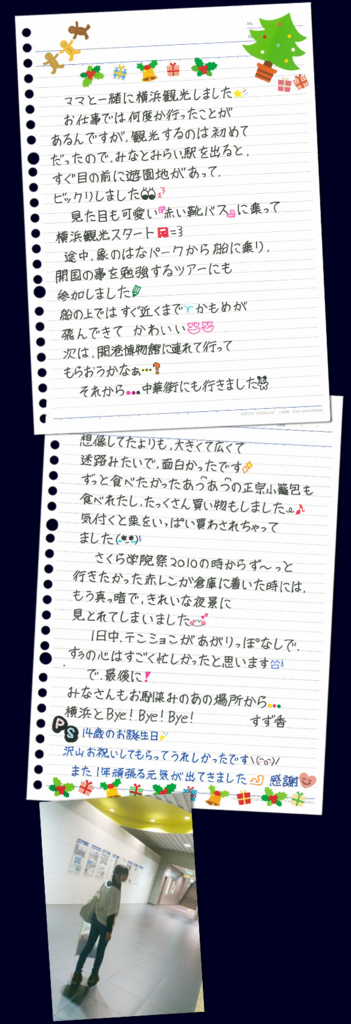 ママと一緒に横浜観光しました
お仕事では何度か行ったことが
あるんですが、観光するのは初めて
だったので、みなとみらい駅を出ると、
すぐ目の前に遊園地があって、
ビックリしました
見た目も可愛い『赤い靴バス』に乗って
横浜観光スタート=3
途中、象のはなパークから船に乗り、
開国の事を勉強するツアーにも
参加しました
船の上ではすぐ近くまでかもめが
飛んできて かわいい
次は、開港博物館に連れて行って
もらおうかなぁ…?
それから…中華街にも行きました
想像してたよりも、大きくて広くて
迷路みたいで、面白かったです
ずっと食べたかったあつあつの正宗小籠包も
食べれたし、たくさん買い物もしました♪
気付くと栗をいっぱい買わされちゃって
ました
さくら学院祭2010の時からず〜っと
行きたかった赤レンガ倉庫に着いた時には、
もう真っ暗で、きれいな夜景に
見とれてしまいました
1日中、テンションがあがりっぱなしで、
すぅの心はすごく忙しかったと思います
で、最後に!
みなさんもお馴染みのあの場所から…
横浜とBye! Bye! Bye! すず香
PS 14歳のお誕生日
沢山お祝いしてもらってうれしかったです\(^o^)/
また1年頑張る元気が出てきました 感謝